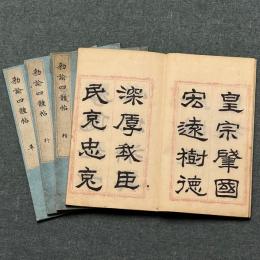 皇宗肇國
宏遠樹德
深厚我臣
民克忠克
勅諭四體帖
勅諭四體帖 行
勅諭四體帖 草